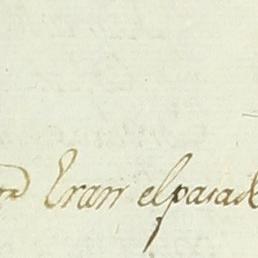 Eran el pasad